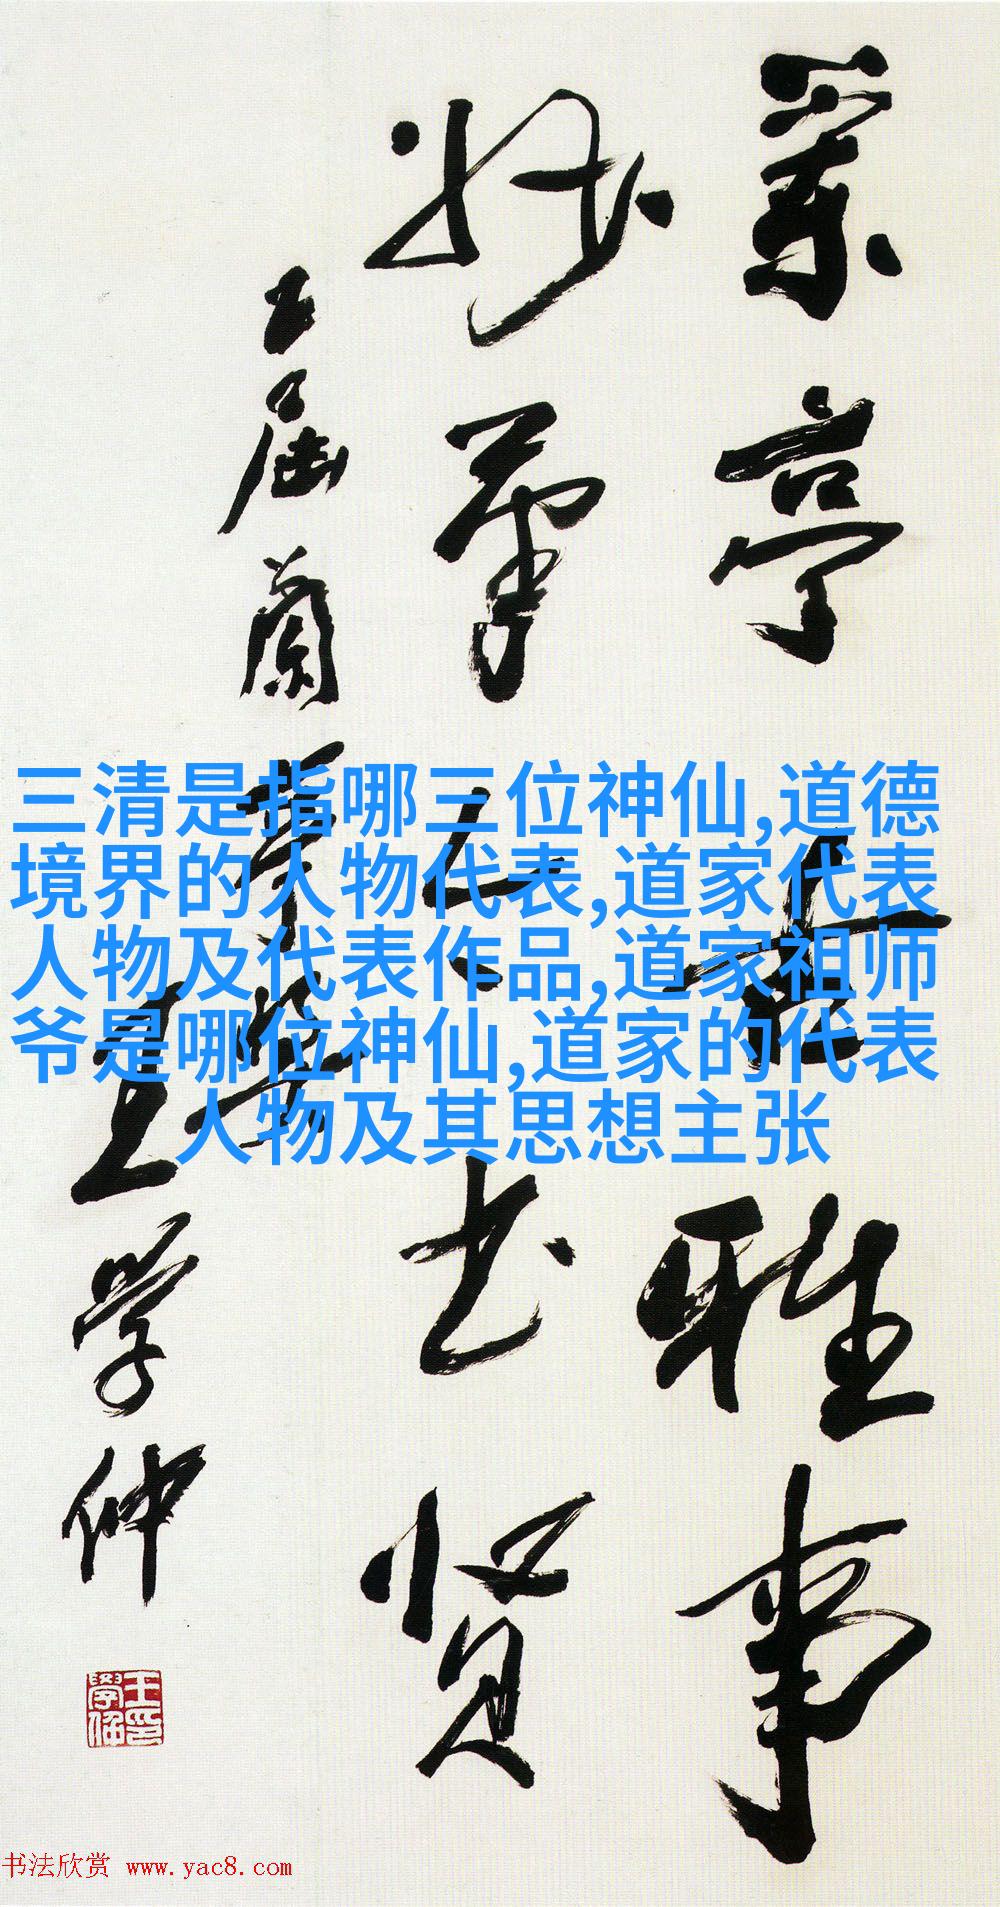 兰亭 雅事
书贤
五届兰亭学
王学仲
三清是指哪三位神仙,道德
境界的人物代表,道家代表
人物及代表作品,道家祖师
爷是哪位神仙,道家的代表
人物及其思想主张
书法欣赏 www.yac8.com